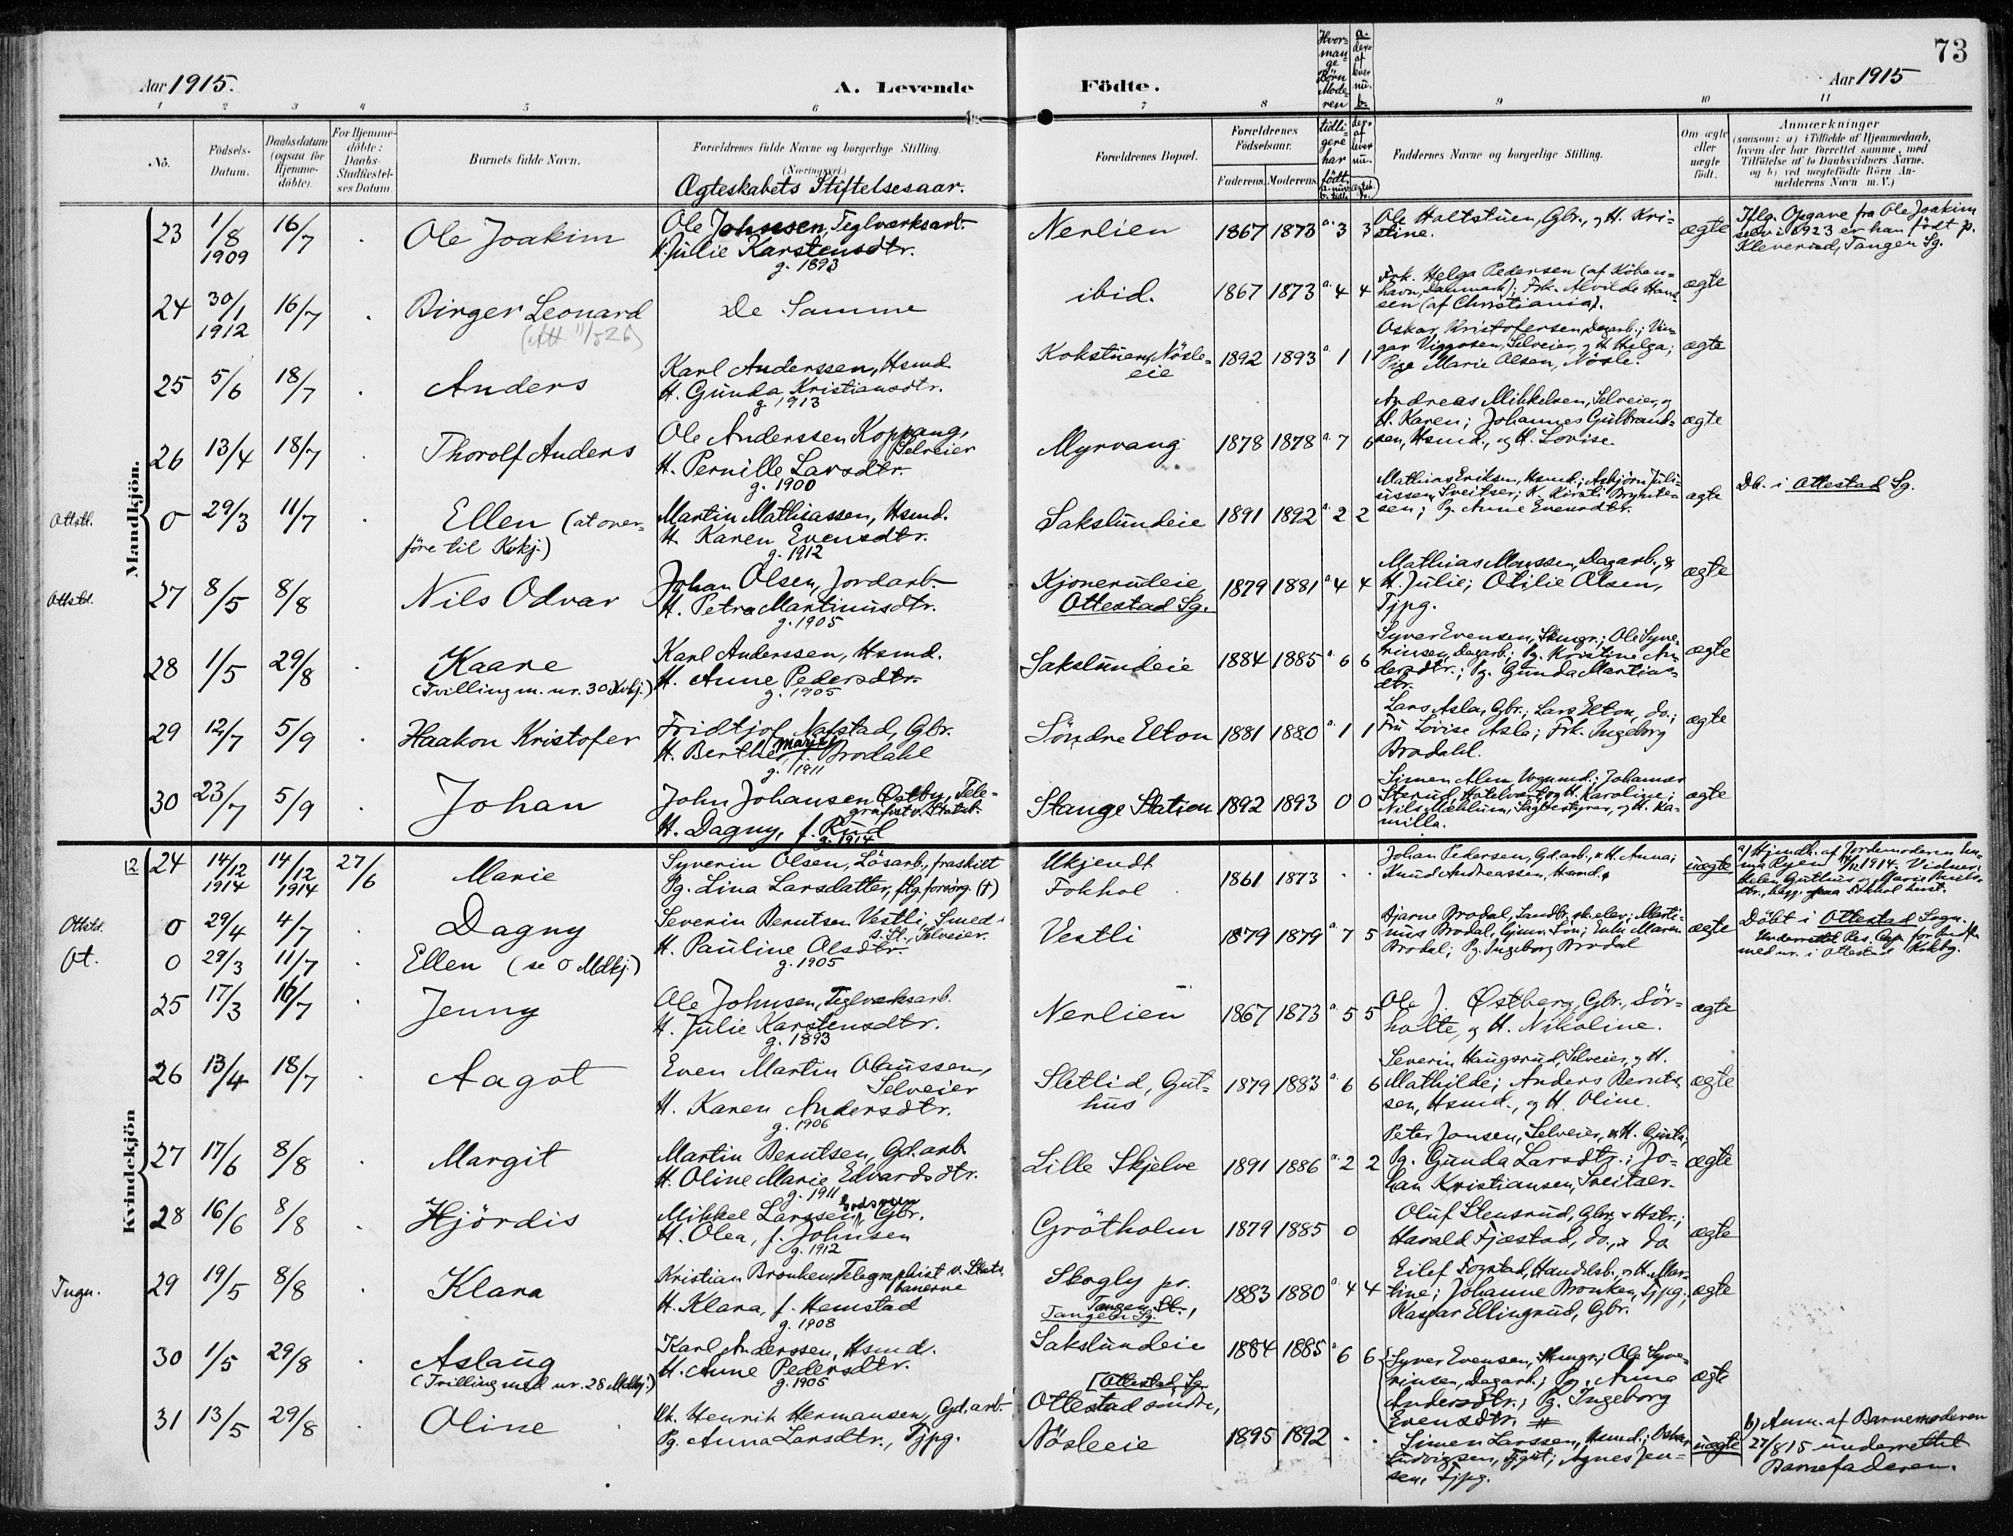 73
Aar 1915.
A. Levende
Födte.
Aar 1915
1 2 3 4 5 6 7 8 9 10 11
No.
Födsels-
Datum.
Daabsdatum
(ogsaa for
Hjemme-
döbte).
For Hjemme-
döbte:
Daabs-
Stadfæstel-
ses Datum.
Barnets fulde Navn.
Forældrenes fulde Navne og borgerlige Stilling.
(Næringsvei.)
Ægteskabets Stiftelsesaar.
Forældrenes Bopæl.
Forældrenes
Födselsaar.
Faderens. Moderens.
Hvor-
man-
ge
Börn
Mode-
ren
tidli-
gere
har
födt.
Faddernes Navne og borgerlige Stilling.
Om ægte
eller
uægte
födt.
Anmærkninger
(saasom: a) i Tilfælde af Hjemmedaab,
hvem der har forrettet samme, med
Tilföielse af to Daabsvidners Navne.
og b) ved uægtefödte Börn An-
melderens Navn m. V.)
Mandkjön.
23 1/8 1909 16/7 Ole Joakim
Ole Johnsen, Teglværksarb.
H. Julie Karstensdtr.
g. 1893
Nerlien 1867 1873 a. 3 3
Ole Holtstuen, Gbr., og H. Kri-
stine.
ægte
Iflg. Opgave fra Ole Joakim
selv i 1923 er han født p.
Kleverud, Tangen Sg.
24 30/1 1912 16/7 Birger Leonard
De Samme
ibid. 1867 1873 a. 4 4
Frk. Helga Pedersen (af Köben-
havn, Danmark); Frk. Alvilde Han-
sen (af Christiania).
ægte
25 5/6 18/7 Anders
Karl Anderssen, Hsmd
H. Gunda Kristiansdtr.
g. 1913
Kokstuen, Nösle-
eie
1892 1893 a. 1 1
Oskar Kristofersen, Dagarb.;
Viggosen, Selveier, og H. Helga;
Pige Marie Olsen, Nösle.
ægte
26 13/4 18/7 Thorolf Anders
Ole Anderssen Koppang,
Selveier
H. Pernille Larsdtr.
g. 1900
Myrvang 1878 1878 a. 7 6
Andreas Mikkelsen, Selveier, og
H. Karen; Johannes Gulbrand-
sen, Hsmd., og H. Lovise.
ægte
Ottstd. 0 29/3 11/7 Ellen (at over-
före til Kvkj.)
Martin Mathiassen, Hsmd.
H. Karen Evensdtr.
g. 1912
Sakslundeie 1891 1892 a. 2 2
Mathias Eriksen, Hsmd.; Asbjörn Juli-
ussen, Sveitser; K. Kirsti Brynte-
sen; Pg. Anne Evensdtr.
ægte
Db. i Ottestad Sg.
Ottstd. 27 8/5 8/8 Nils Odvar
Johan Olsen, Jordarb.
H. Petra Martinusdtr.
g. 1905
Kjonerudeie,
Ottestad Sg.
1879 1881 a. 4 4
Mathias Monssen, Dagarb. &
H. Julie; Otilie Olsen,
Tjpg.
ægte
28 1/5 29/8 Kaare
(Tvilling m. nr. 30 Kvkj.)
Karl Anderssen, Hsmd.
H. Anne Pedersdtr.
g. 1905
Sakslundeie 1884 1885 a. 6 6
Syver Evensen, Skmgr.; Ole Syve-
rinsen, Dagarb.; Pg. Kristine An-
dersdtr.; Pg. Gunda Martins-
dtr.
ægte
29 12/7 5/9 Haakon Kristofer
Fridtjof Nafstad, Gbr.
H. Berthe Marie f. Brodahl
g. 1911
Söndre Elton 1881 1880 a. 1 1
Lars Asla, Gbr.; Lars Elton, do.;
Fru Lovise Asla; Frk. Ingeborg
Brodahl.
ægte
30 23/7 5/9 Johan
John Johansen Østby, Tele-
grafist v. Statsb.
H. Dagny, f. Rud
g. 1914
Stange Station 1892 1893 0 0
Simen Alm, Vognmd.; Johannes
Sterud, Hotelvært og H. Karoline;
Nils Mæhlum, Sagbestyrer, og H. Ka-
milla.
ægte
Kvindekjön
12 24 14/12 1914 14/12 1914 27/6 Marie
Syverin Olsen, Lösarb., fraskilt
Pg. Lina Larsdatter, flg. forsörg. (†)
Ukjendt
Fokhol
1861 1873
Johan Pedersen, Gd.arb., & H. Anna;
Knud Andreassen, Hsmd.
uægte
a) Hjemdb. af Jordemoderen
Ottstd. 0 29/4 4/7 Dagny
Severin Berntsen Vestli, Smed
Selveier.
H. Pauline Olsdtr.
g. 1905
Vestli 1879 1879 a. 7 5
Bjarne Brodal, Landbr.sk.elev; Marti-
nus Brodal, Maren
Brodal; Pg. Ingeborg Brodal
ægte
Döbt i Ottestad Sogn.
Ot. 0 29/3 11/7 Ellen (se 0 Mdkj.)
25 17/3 16/7 Jenny
Ole Johnsen, Teglværksarb.
H. Julie Karstensdtr.
g. 1893
Nerlien 1867 1873 a. 5 5
Ole J. Østberg, Gbr., Sör-
holte, og H. Nikoline.
ægte
26 13/4 18/7 Aagot
Even Martin Olaussen,
Selveier
H. Karen Andersdtr.
g. 1906
Sletlid, Gut-
hus
1879 1883 a. 6 6
Severin Haugsrud, Selveier, og H.
Mathilde; Anders Bernt-
sen, Hsmd., og H. Oline.
ægte
27 17/6 8/8 Margit
Martin Berntsen, Gd.arb
H. Oline Marie Edvardsdtr.
g. 1911
Lille Skjelve 1891 1886 a. 2 2
Peter Jonsen, Selveier, & H. Gusta;
Pg. Gunda Larsdtr.; Jo-
han Kristiansen, Sveitser.
ægte
28 16/6 8/8 Hjördis
Mikkel Larssen Bredsveen Gbr.
H. Olea, f. Johnsen
g. 1912
Grötholm 1879 1885 0
Oluf Stensrud, Gbr. & Hstr.;
Harald Fjæstad, do., & do
ægte
Tngn. 29 19/5 8/8 Klara
Kristian Bronken, Telegraphist v. Stats-
banerne
H. Klara, f. Hemstad
g. 1908
Skogly pr.
Tangen St.,
Tangen Sg.
1883 1880 a. 4 4
Eilef Fogstad, Handelsb., og H. Mar-
tine; Johanne Bronken, Tjpg.;
Kaspar Ellingrud, Gbr.
ægte
30 1/5 29/8 Aslaug
(Tvilling med nr. 28 Mdkj.)
Karl Anderssen, Hsmd.
H. Anne Pedersdtr.
g. 1905
Sakslundeie 1884 1885 a. 6 6
Syver Evensen, Skmgr.; Ole Syve-
rinsen, Dagarb.; Pg. Anna
Andersdtr.; Pg. Ingeborg
Evensdtr.
ægte
31 13/5 29/8 Oline
Uk. Henrik Hermansen, Gd.arb.
Pg. Anna Larsdtr., Tjpg.
[Ottestad Sg
Ottestad söndre,
Nösleeie
1895 1892
Simen Larssen, Hsmd.; Oskar
Ludvigsen, Tjgut; Agnes Jen-
sen, Tjpg.
uægte
b) Anm. af Barnemoderen
27/8 15 underrettet
Barnefaderen.